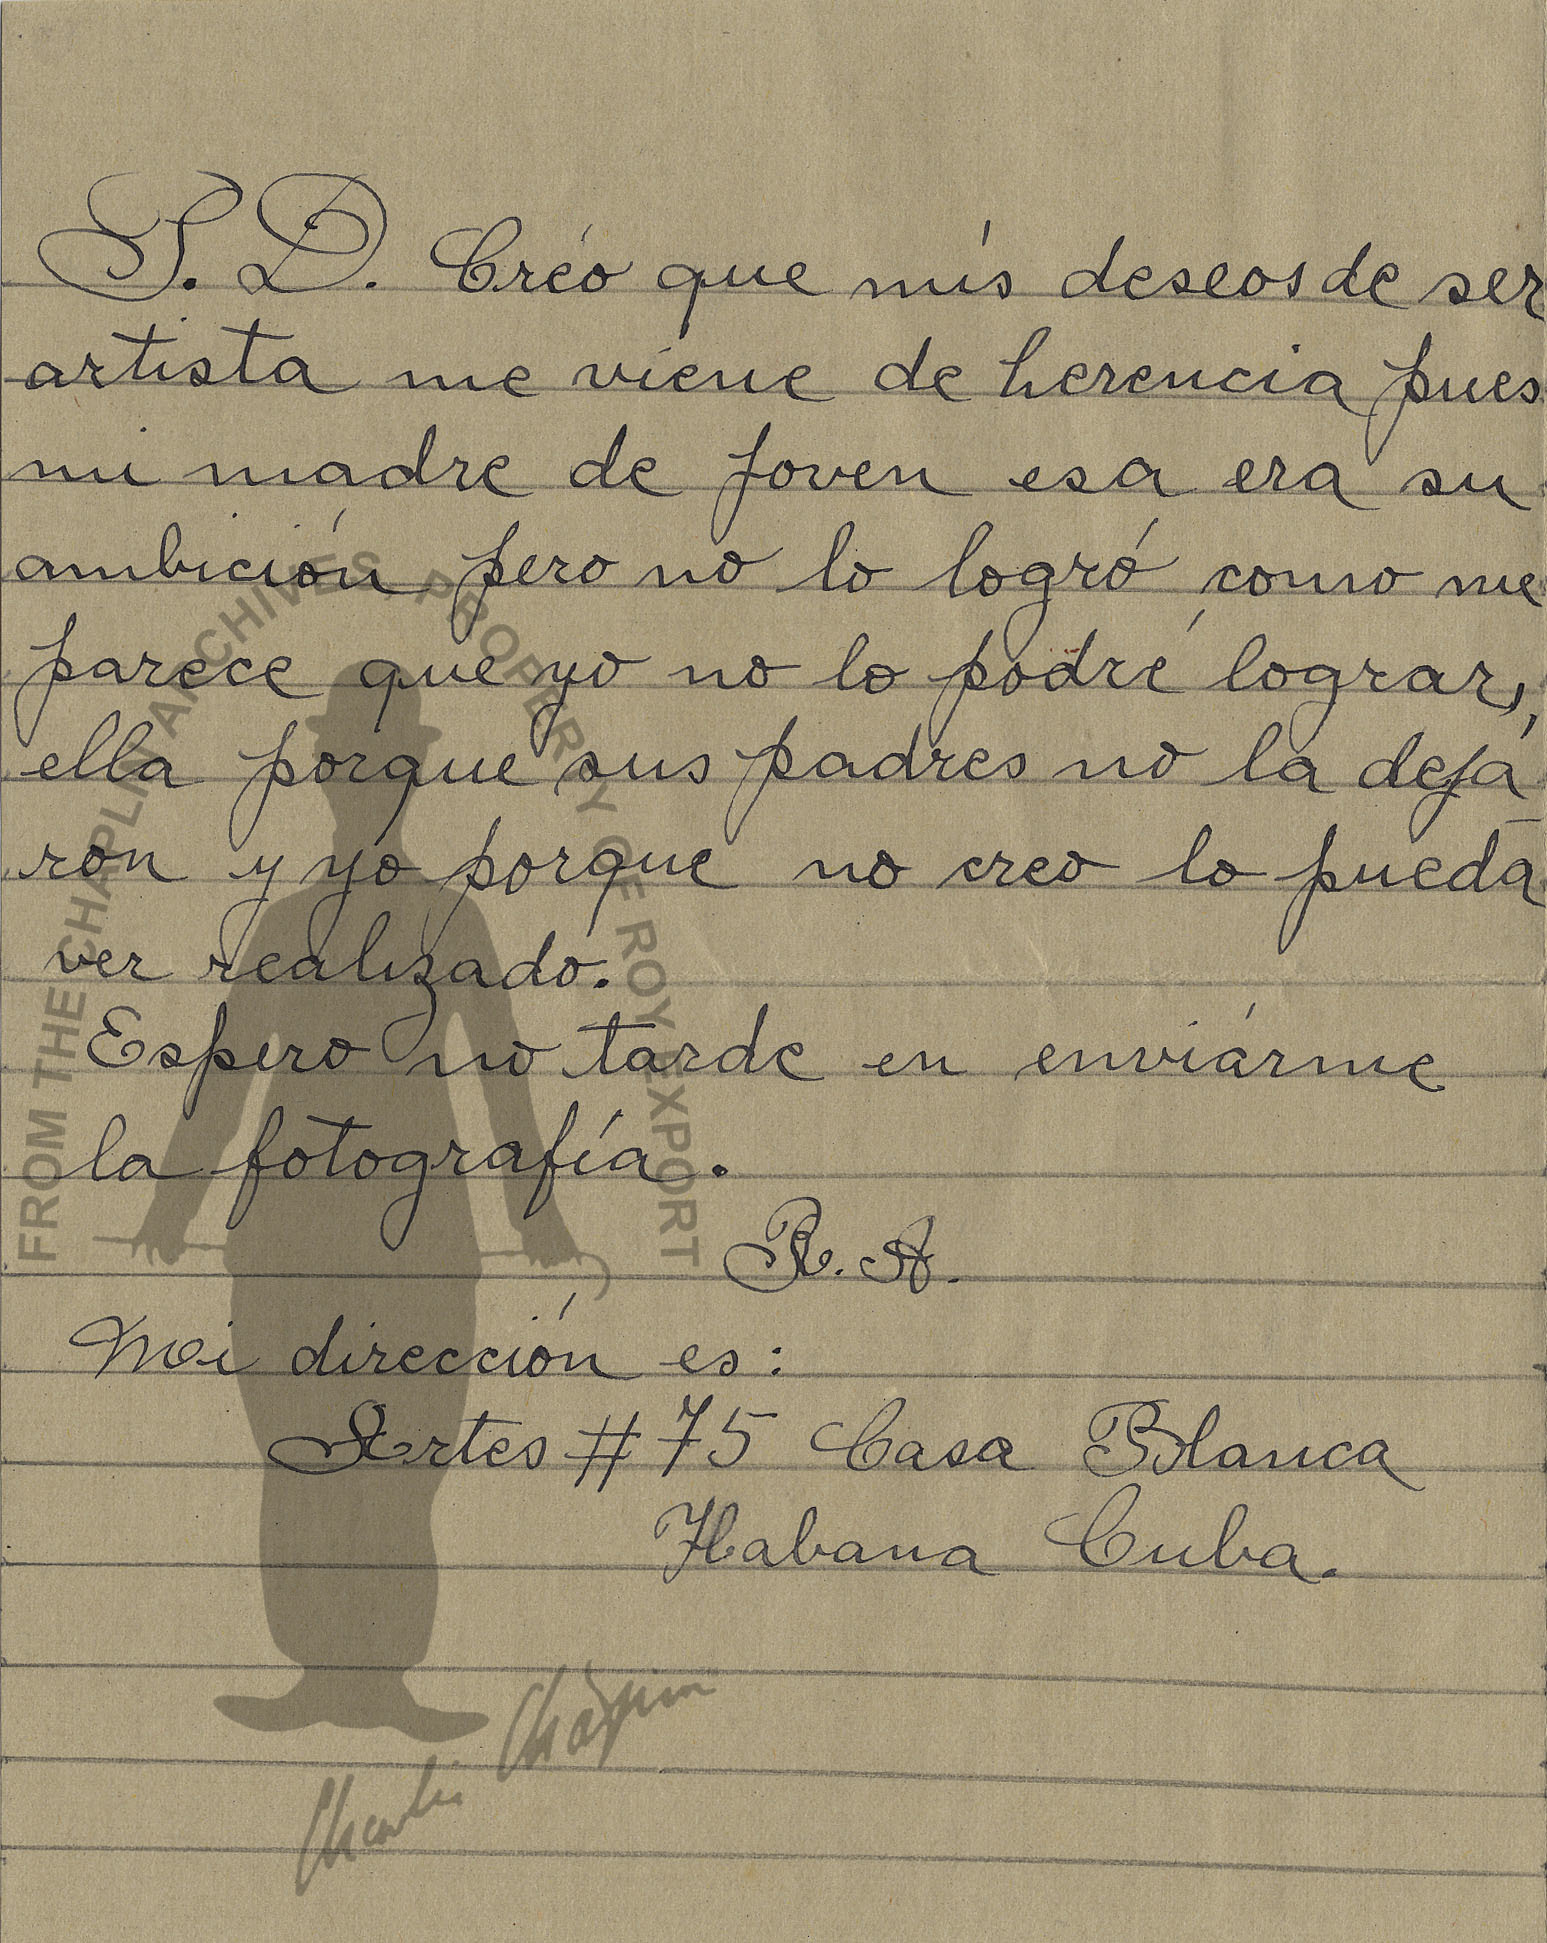 P. D. Creo que mis deseos de ser
artista me viene de herencia pues
mi madre de joven esa era su
ambición pero no lo logró como me
parece que yo no lo podré lograr,
ella porque sus padres no la deja
ron y yo porque no creo lo pueda
ver realizado.
Espero no tarde en enviárme
la fotografía.
R. A.
Mi dirección es:
Artes # 75 Casa Blanca
Habana Cuba.
FROM THE CHAPLIN ARCHIVES, PROPERTY OF ROY EXPORT
Charlie Chaplin